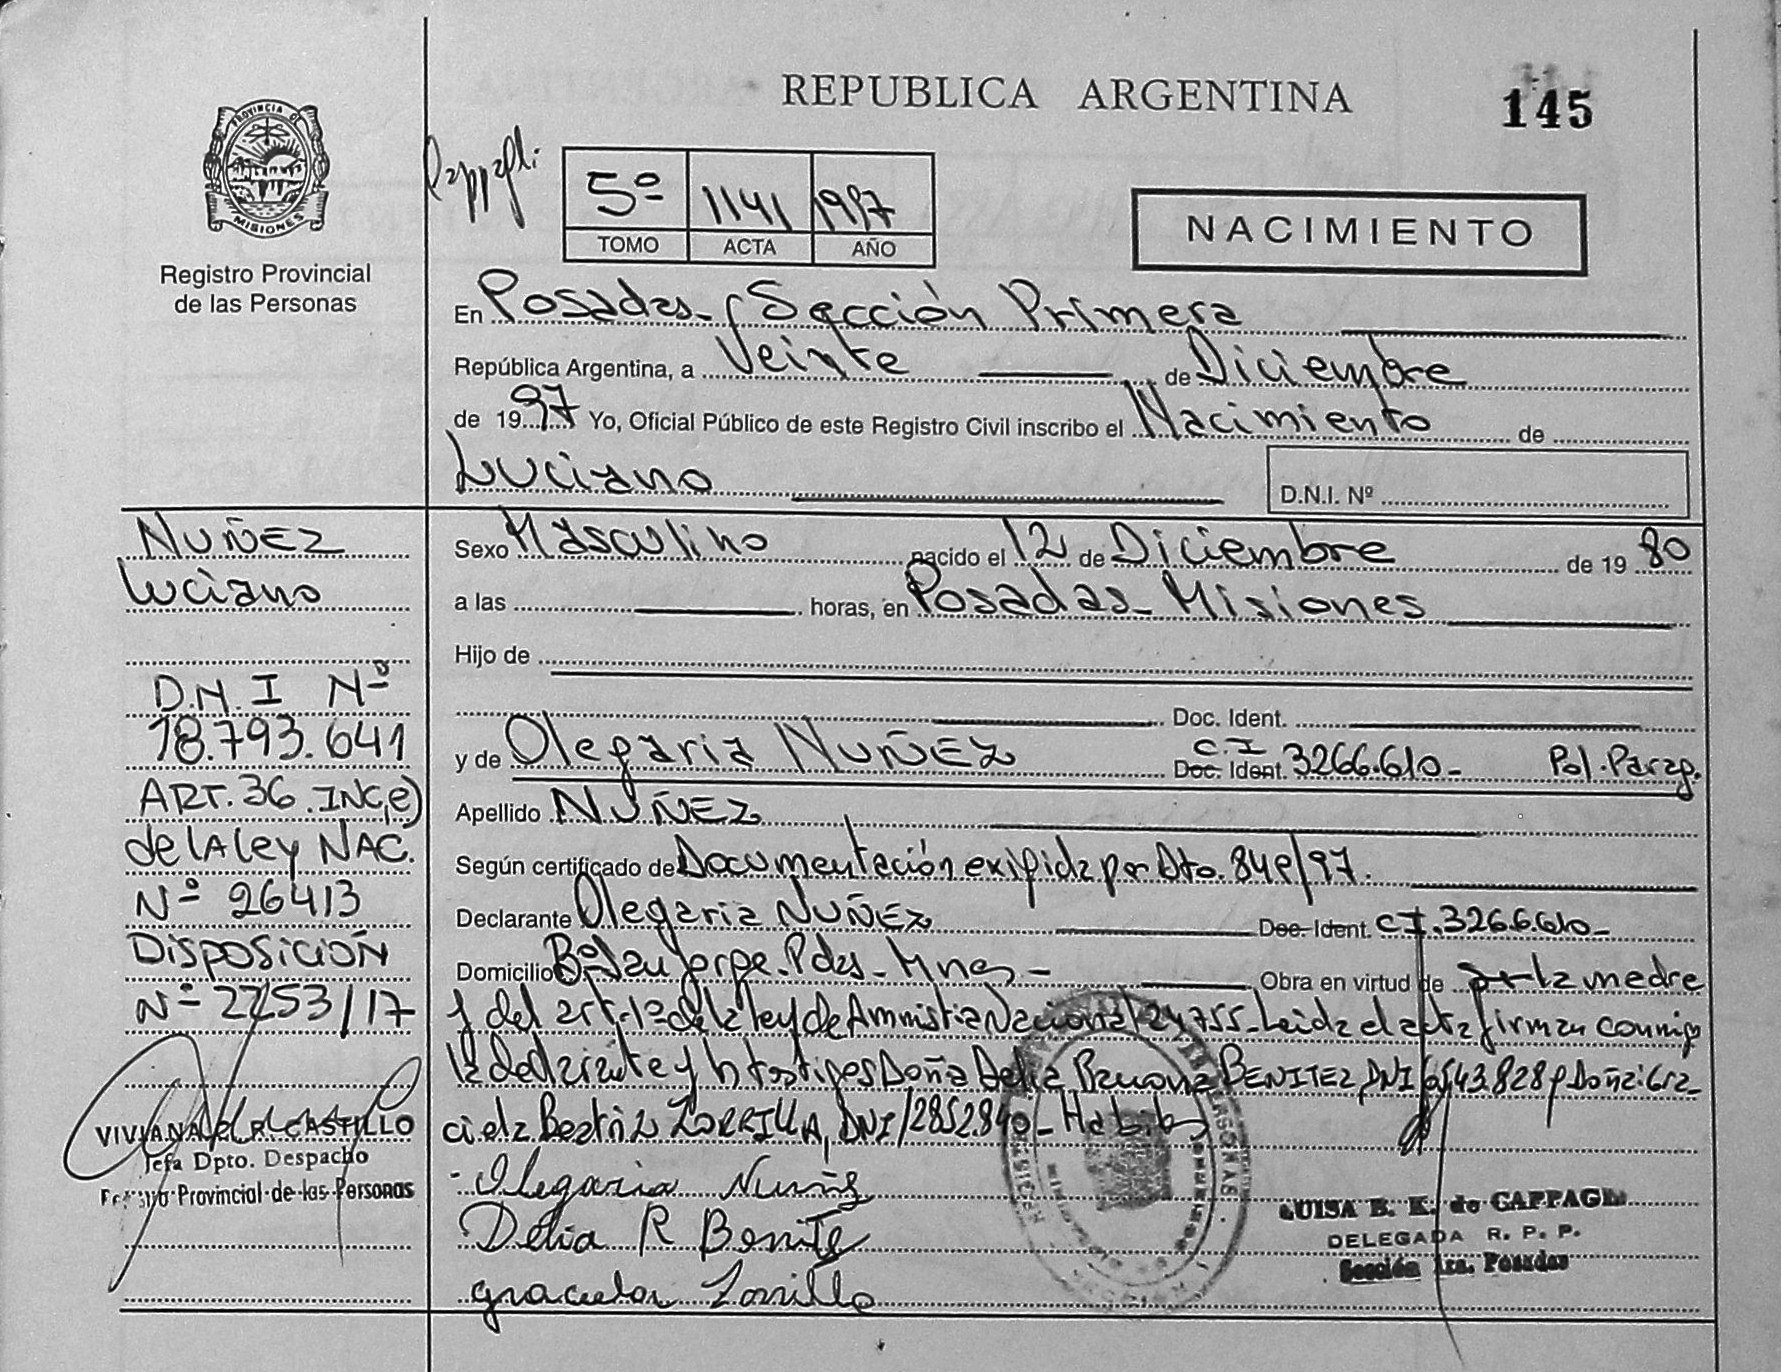 REPUBLICA ARGENTINA
145
PROVINCIA DE
MISIONES
Registro Provincial
de las Personas
5º 1141 1997
TOMO ACTA AÑO
NACIMIENTO
En Posadas - Sección Primera
República Argentina, a Veinte de Diciembre
de 1997 Yo, Oficial Público de este Registro Civil inscribo el Nacimiento de
Luciano
D.N.I. Nº
NUÑEZ
Luciano
D.N.I Nº
18.793.641
ART.36.INC,e)
de lA ley NAC.
Nº 26413
DISPOSICIÓN
Nº 2253/17
VIVIANA R. CASTILLO
Jefa Dpto. Despacho
Registro Provincial de las Personas
Sexo Masculino nacido el 12 de Diciembre de 19 80
a las horas, en Posadas - Misiones
Hijo de
Doc. Ident.
y de Olegaria NUÑEZ C.I Doc. Ident. 3266.610- Pol. Parag.
Apellido NUÑEZ
Según certificado de Documentación exigida por Dto. 849/97.
Declarante Olegaria NUÑEZ Doc. Ident. CI. 3266.610-
Domicilio Bº San Jorge - Pdas - Mnes - Obra en virtud de la madre
y del art. 1º de la ley de Amnistia Nacional 24755 - Leida el acta firman conmigo
la declarante y los testigos Doña Delia Ramona BENITEZ, DNI 43.828 y Doña Gra
ciela Beatriz ZORRILLA, DNI 2852840 -
Olegaria Nuñez
Delia R Benite
graciela Zorrilla
LUISA B. K. de CAPPAGLI
DELEGADA R. P. P.
Sección 1ra. Posadas